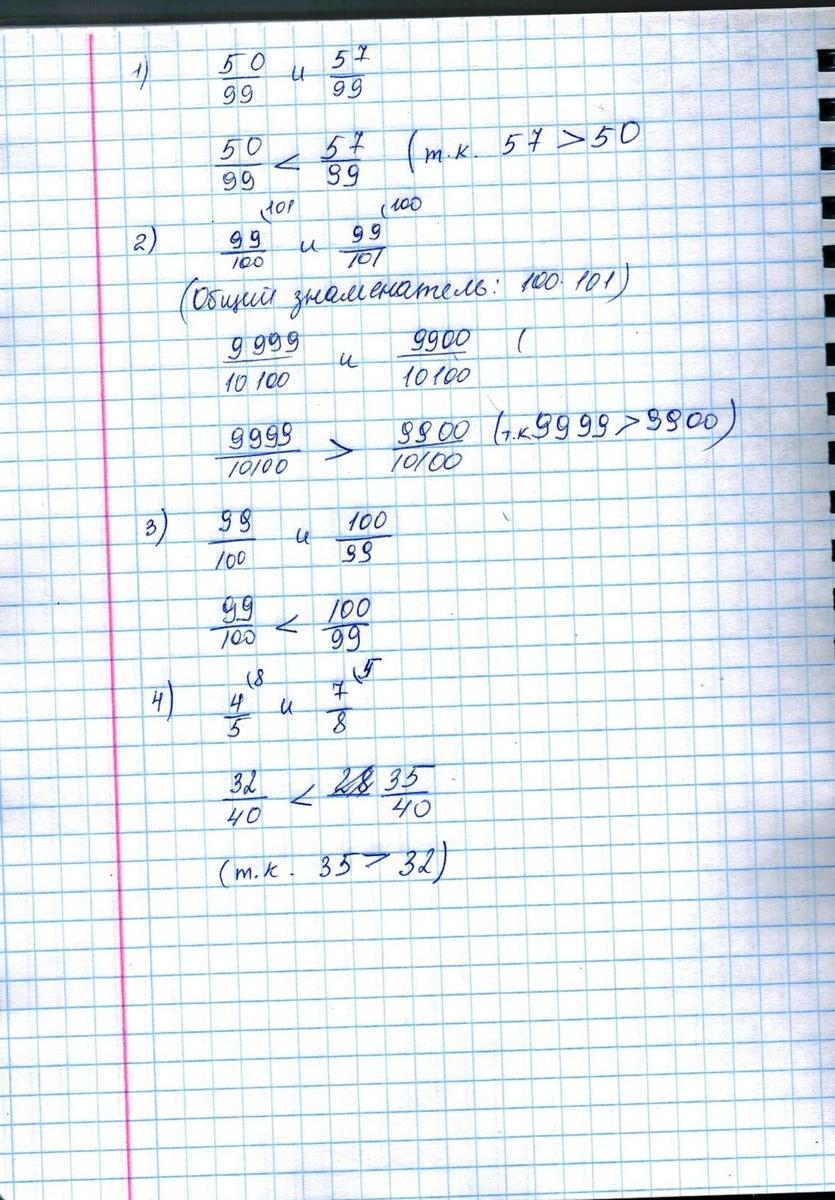 1) 50/99 и 57/99
50/99 < 57/99 (т.к. 57 > 50
2) 99/100 (101 и 99/101 (100
(Общий знаменатель: 100·101)
9999/10100 и 9900/10100 (
9999/10100 > 9900/10100 (т.к 9999 > 9900)
3) 99/100 и 100/99
99/100 < 100/99
4) 4/5 (8 и 7/8 (5
32/40 < 28 35/40
(т.к. 35 > 32)